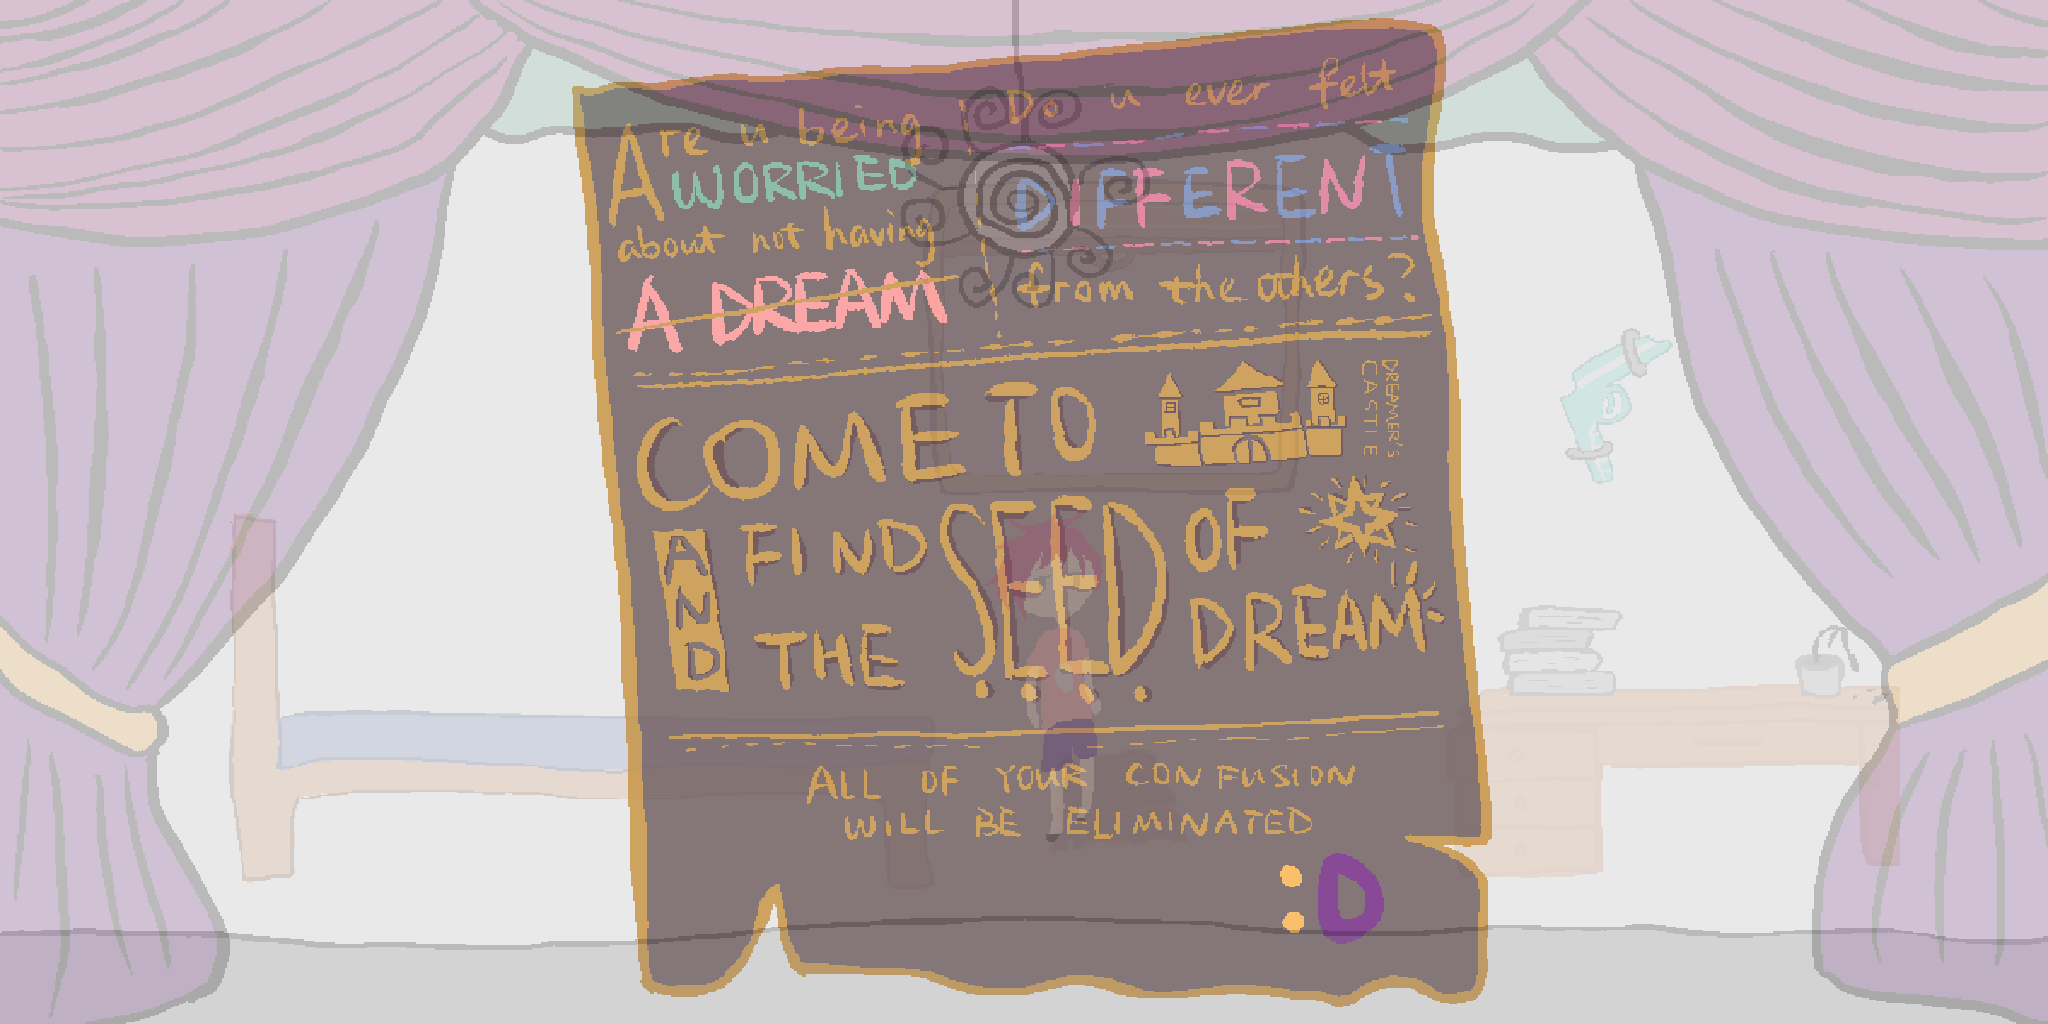 Are u being
WORRIED
about not having
A DREAM
Do u ever felt
DIFFERENT
from the others?
COME TO
DREAMER'S
CASTLE
AND FIND THE SEED OF DREAM
ALL OF YOUR CONFUSION
WILL BE ELIMINATED
:D